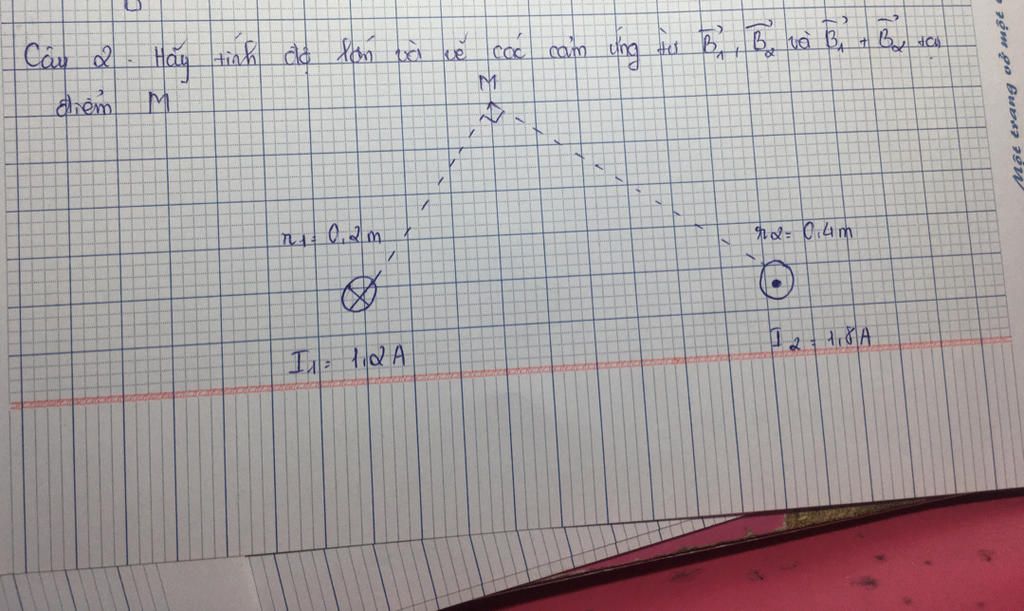 Câu 2. Hãy tính độ lớn và vẽ các cảm ứng từ B₁, B₂ và B₁ + B₂ tại
điểm M
M
r₁= 0,2m
r₂= 0,4m
I₁= 1,2A
I₂= 1,8A
Một trang vở một